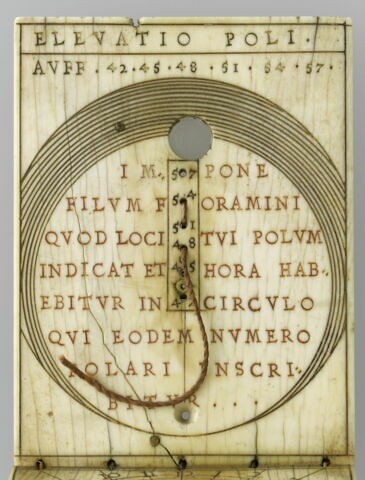 ELEVATIO POLI .
AVFF . 42 . 45 . 48 . 51 . 54 . 57 .
I M. 57 PONE
FILVM F 54 ORAMINI
51
QVOD LOCI 48 TVI POLVM
INDICAT ET 45 HORA HAB..
EBITVR IN 42 CIRCVLO
QVI EODEM NVMERO
POLARI INSCRI..
BITVR . . . .